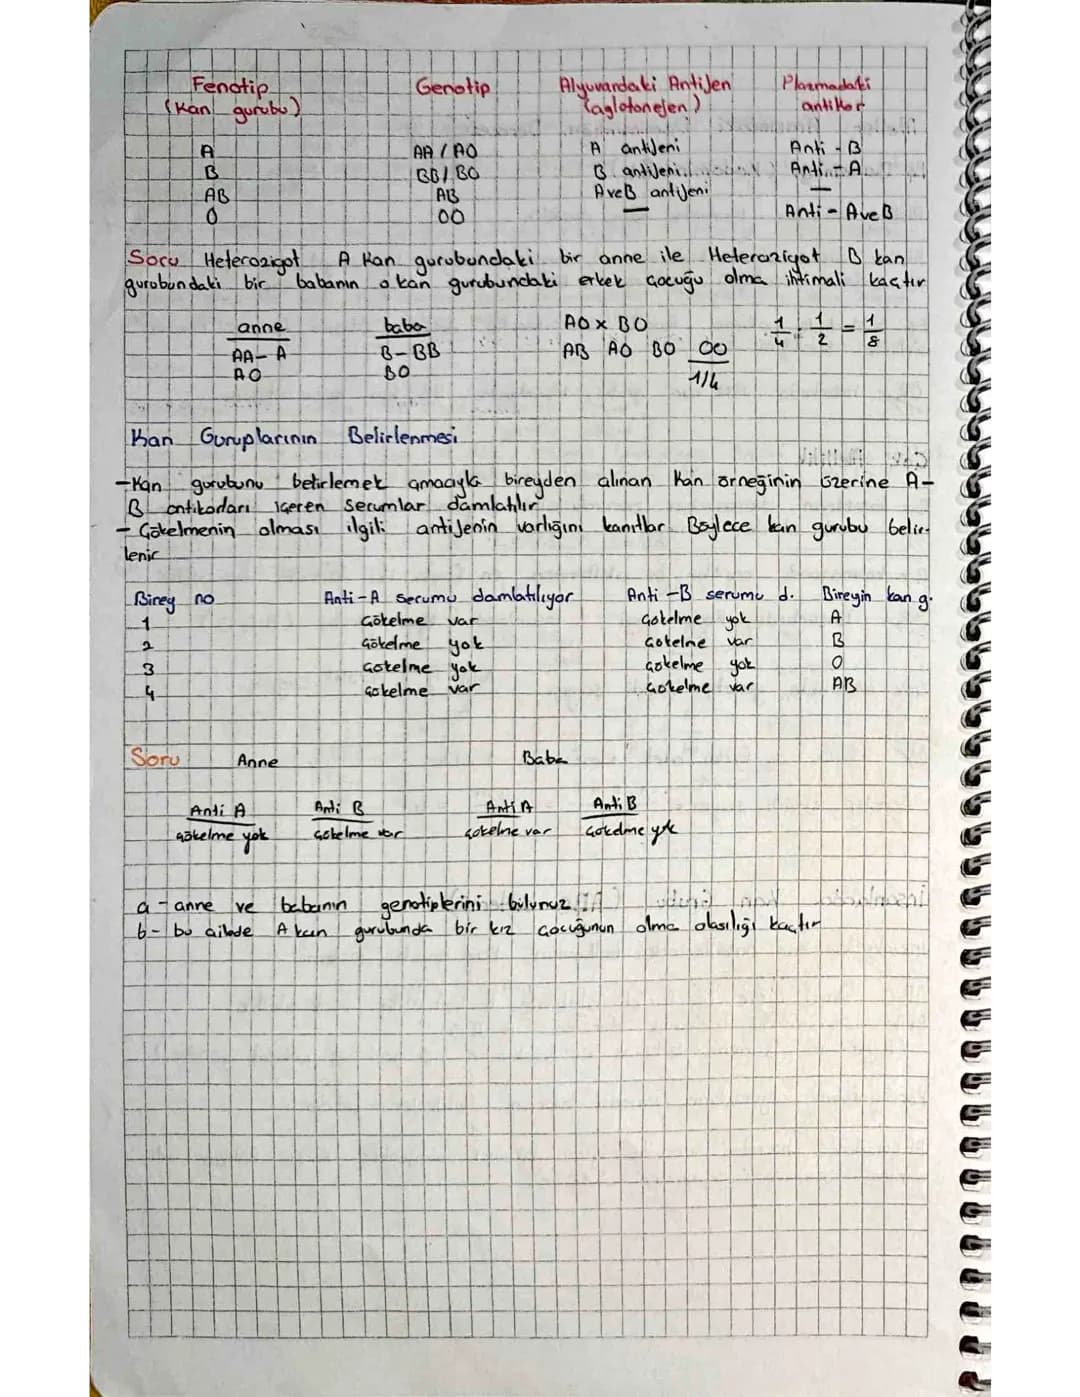 Fenotip Genotip Alyuvardaki Antijen Plazmadaki
(Kan gurubu) (aglotonejen) antikor
A AA / AO A antijeni Anti - B
B BB / BO B antijeni Anti - A
AB AB AveB antijeni —
O OO — Anti - AveB
Soru Heterozigot A Kan gurubundaki bir anne ile Heterozigot B kan
gurubundaki bir babanın o kan gurubundaki erkek çocuğu olma ihtimali kaçtır
anne baba AO x BO 1/4 . 1/2 = 1/8
AA - A B - BB AB AO BO OO
AO BO 1/4
Kan Guruplarının Belirlenmesi
- Kan gurubunu belirlemek amacıyla bireyden alınan Kan örneğinin üzerine A-
B antikorları içeren serumlar damlatılır
- Çökelmenin olması ilgili antijenin varlığını kanıtlar Böylece kan gurubu belir-
lenir
Birey no Anti-A serumu damlatılıyor Anti-B serumu d. Bireyin kan g.
1 Çökelme var Çökelme yok A
2 Çökelme yok Çökelme var B
3 Çökelme yok Çökelme yok O
4 Çökelme var Çökelme var AB
Soru Anne Baba
Anti A Anti B Anti A Anti B
çökelme yok çökelme var çökelme var çökelme yok
a - anne ve babanın genotiplerini bulunuz
b - bu ailede A kan gurubunda bir kız çocuğunun olma olasılığı kaçtır